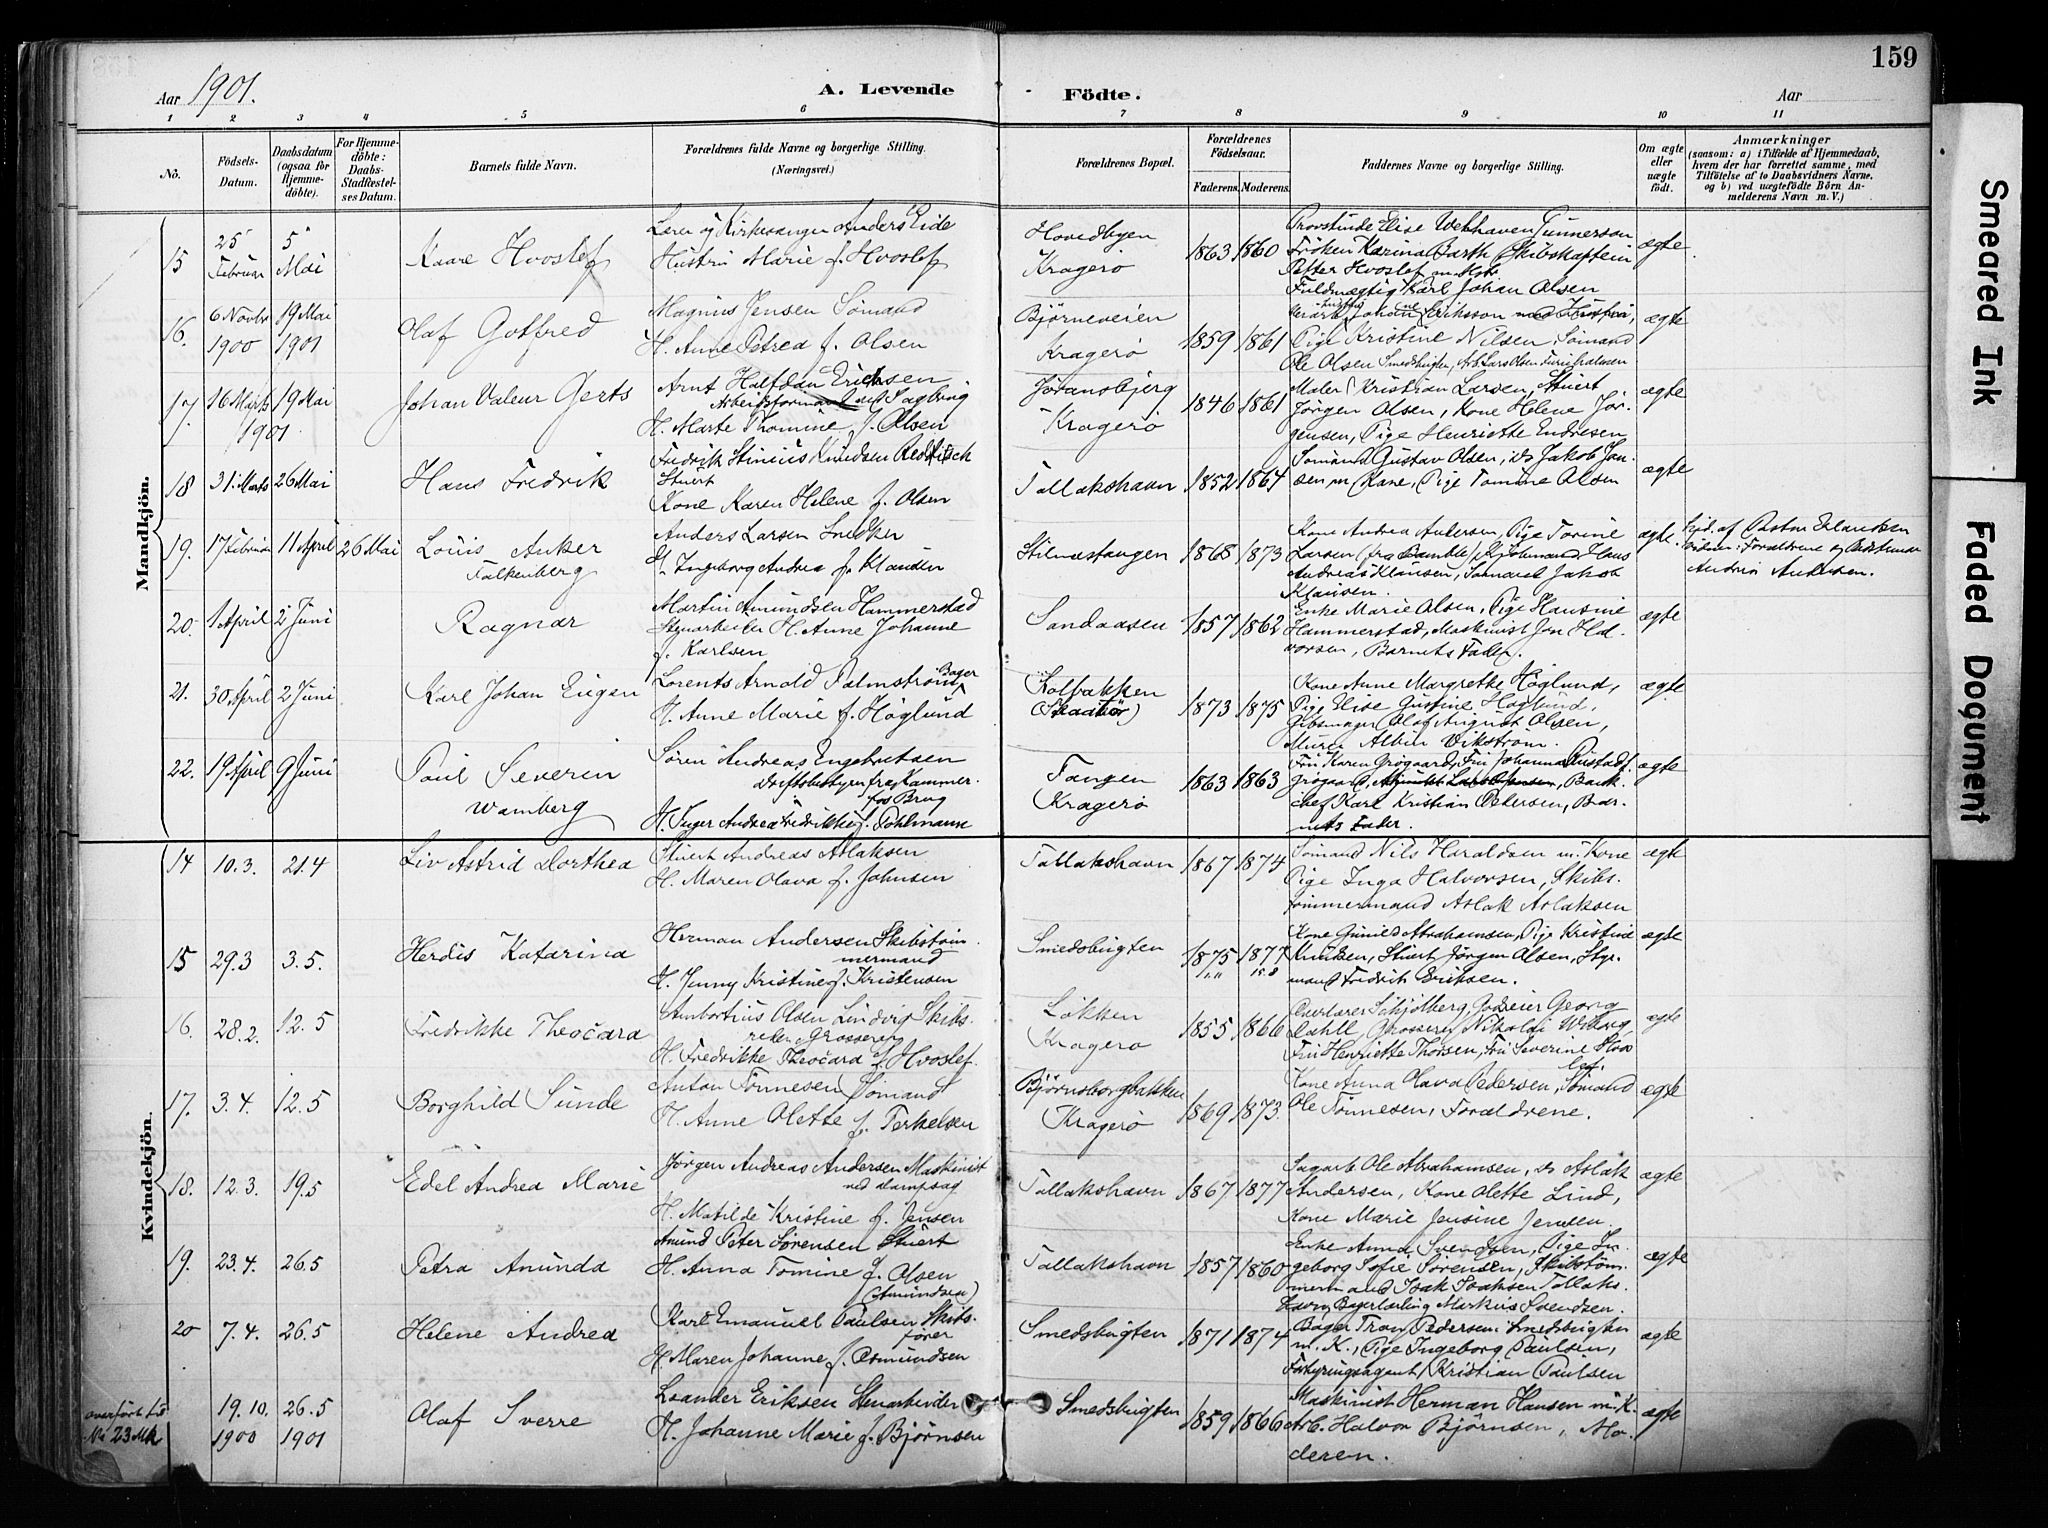 159
Aar 1901.
A. Levende Födte.
Aar
1 2 3 4 5 6 7 8 9 10 11
No.
Födsels-Datum.
Daabsdatum (ogsaa for Hjemme-döbte).
For Hjemme-döbte: Daabs-Stadfæstel-ses Datum.
Barnets fulde Navn.
Forældrenes fulde Navne og borgerlige Stilling.
(Næringsvei.)
Forældrenes Bopæl.
Forældrenes Födselsaar.
Faderens. Moderens.
Faddernes Navne og borgerlige Stilling.
Om ægte eller uægte födt.
Anmærkninger
(saasom: a) i Tilfælde af Hjemmedaab,
hvem der har forrettet samme, med
Tilföielse af to Daabsvidners Navne,
og b) ved uægtefödte Börn An-
melderens Navn m. V.)
Mandkjön.
15 25 Februar 5 Mai Kaare Hvoslef
Lærer og Kirkesanger Anders Eide
Hustru Marie f. Hvoslef
Hovedbyen
Kragerö
1863 1860
Provstinde Elise Welhaven Gunnerson
Fröken Karina Barth Skibskaptein
Petter Hvoslef
Fuldmægtig Karl Johan Olsen
ægte.
16. 6 Novbr 1900 19 Mai 1901 Olaf Gotfred
Magnus Jensen Sömand
H. Anne Petrea f. Olsen
Björneveien
Kragerö
1859 1861
Eriksson
Pige Kristine Nilsen, Sömand
Ole Olsen Smedsbugten, Arb. Lars Olsen
ægte
17. 16 Marts 1901 19 Mai Johan Valeur Gerts
Arnt Halfdan Ericksen
Arbeidsformand ved Sagbrug
H. Marte Thomine f. Olsen
Jöransbjerg
Kragerö
1846 1861
Maler Kristian Larsen, Stuert
Jörgen Olsen, Kone Helene Jör-
gensen, Pige Henriette Endresen
ægte
18 31 Marts 26 Mai Hans Fredrik
Fredrik Stinius Knudsen
Stuert
Kone Karen Helene f. Olsen
Tallakshavn
1852 1864
Sömand Gustav Olsen, do Jakob Jan-
sen m Kone, Pige Tomine Olsen
ægte
19. 17 Februar 11 April 26 Mai Louis Anker
Falkenberg
Anders Larsen Snedker
H. Ingeborg Andrea f. Klausen
Stilnestangen
1868 1873
Kone Andrea Andersen, Pige Torine
Larsen (fra Bamble), Sjömand Hans
Andreas Klausen, Sömand Jakob
Klausen.
ægte.
af Pastor Erlandsen
Forældrene og
Andrea Andersen.
20. 1 April 2 Juni Ragnar
Martin Amundsen Hammerstad
Stenarbeider H. Anne Johanne
f. Karlsen
Sandaasen
1857 1862
Enke Marie Olsen, Pige Hansine
Hammerstad, Maskinist Jon Hal-
vorsen, Barnets Fader.
ægte
21. 30 April 2 Juni Karl Johan Eugen
Lorents Arnold Palmström Bager
H. Anne Marie f. Höglund
Kolbakken
(Skaatö)
1873 1875
Kone Anne Margrethe Höglund,
Pige Elise Gustine Höglund,
Gibsmager Olaf August Olsen,
Murer Albin Vikström.
ægte
22. 19 April 9 Juni Paul Severin
Wamberg
Sören Andreas Engebretsen
Driftsbestyrer fra Kammer-
fos Brug
H. Inger Andrea Fredrikke f. Pohlmann
Tangen
Kragerö
1863 1863
Fru Karen Grögaard, Fru Johanna Rustad f.
Grögaard, Bank-
chef Karl Kristian Petersen, Bar-
nets Fader.
ægte
Kvindekjön.
14 10.3. 21.4 Liv Astrid Dorthea
Stuert Andreas Aslaksen
H. Maren Olava f. Johnsen
Tallakshavn
1867 1874
Sömand Nils Haraldsen m. Kone
Pige Inga Halvorsen, Skibs-
tömmermand Aslak Aslaksen
ægte
15 29.3 3.5. Herdis Katarina
Herman Andersen Skibstöm-
mermand
H. Jenny Kristine f. Kristensen
Smedsbugten
1875 1877
15.8
Kone Gunild Abrahamsen, Pige Kristine
Knudsen, Stuert Jörgen Olsen, Styr-
mand Fredrik Eriksen.
ægte
16. 28.2. 12.5 Fredrikke Theocara
Ambortius Olsen Lindvig Skibs-
reder, Grosserer
H. Fredrikke Theocara f. Hvoslef
Lökken
Kragerö
1855 1866
Overlærer Schjölberg, Godseier Georg
Dahll, Grosserer Nikolai Wiborg
Fru Henriette Thorsen, Fru Severine Hvos-
lef.
ægte
17. 3.4. 12.5 Borghild Sunde
Anton Tönnesen Sömand
H. Anne Olette f. Terkelsen
Björnsborgbakken
Kragerö
1869 1873.
Kone Anna Olava Pedersen, Sömand
Ole Tönnesen, Forældrene.
ægte
18. 12.3. 19.5 Edel Andrea Marie
Jörgen Andreas Andersen Maskinist
ved Dampsag
H. Matilde Kristine f. Jensen
Tallakshavn
1867 1877
Sagarb Ole Abrahamsen, do Aslak
Andersen, Kone Olette Lind,
Kone Marie Jensine Jensen.
ægte
19. 23.4. 26.5 Petra Amunda
Amund Peter Sörensen Stuert
H. Anna Tomine f. Olsen
(Amundsen)
Tallakshavn
1857 1860
Enke Anna Svendsen, Pige In-
geborg Sofie Sörensen, Skibstöm-
mermand Isak Isaksen Tallaks-
havn, Bagerlærling Markus Svendsen.
ægte
20 7.4. 26.5 Helene Andrea
Karl Emanuel Paulsen Skibs-
förer
H. Maren Johanne f. Osmundsen
Smedsbugten
1871 1874
Bager Tron Pedersen Smedsbugten
m. K., Pige Ingeborg Paulsen,
Forhyringsagent Kristian Paulsen
ægte
overfört til
No 23 Mk
19.10. 1900 26.5 1901 Olaf Sverre
Leander Eriksen Stenarbeider
H. Johanne Marie f. Björnsen
Smedsbugten
1859 1866
Maskinist Herman Hansen m. K.
Arb. Halvor Björnsen, Mo-
deren.
ægte
Smeared Ink
Faded Document